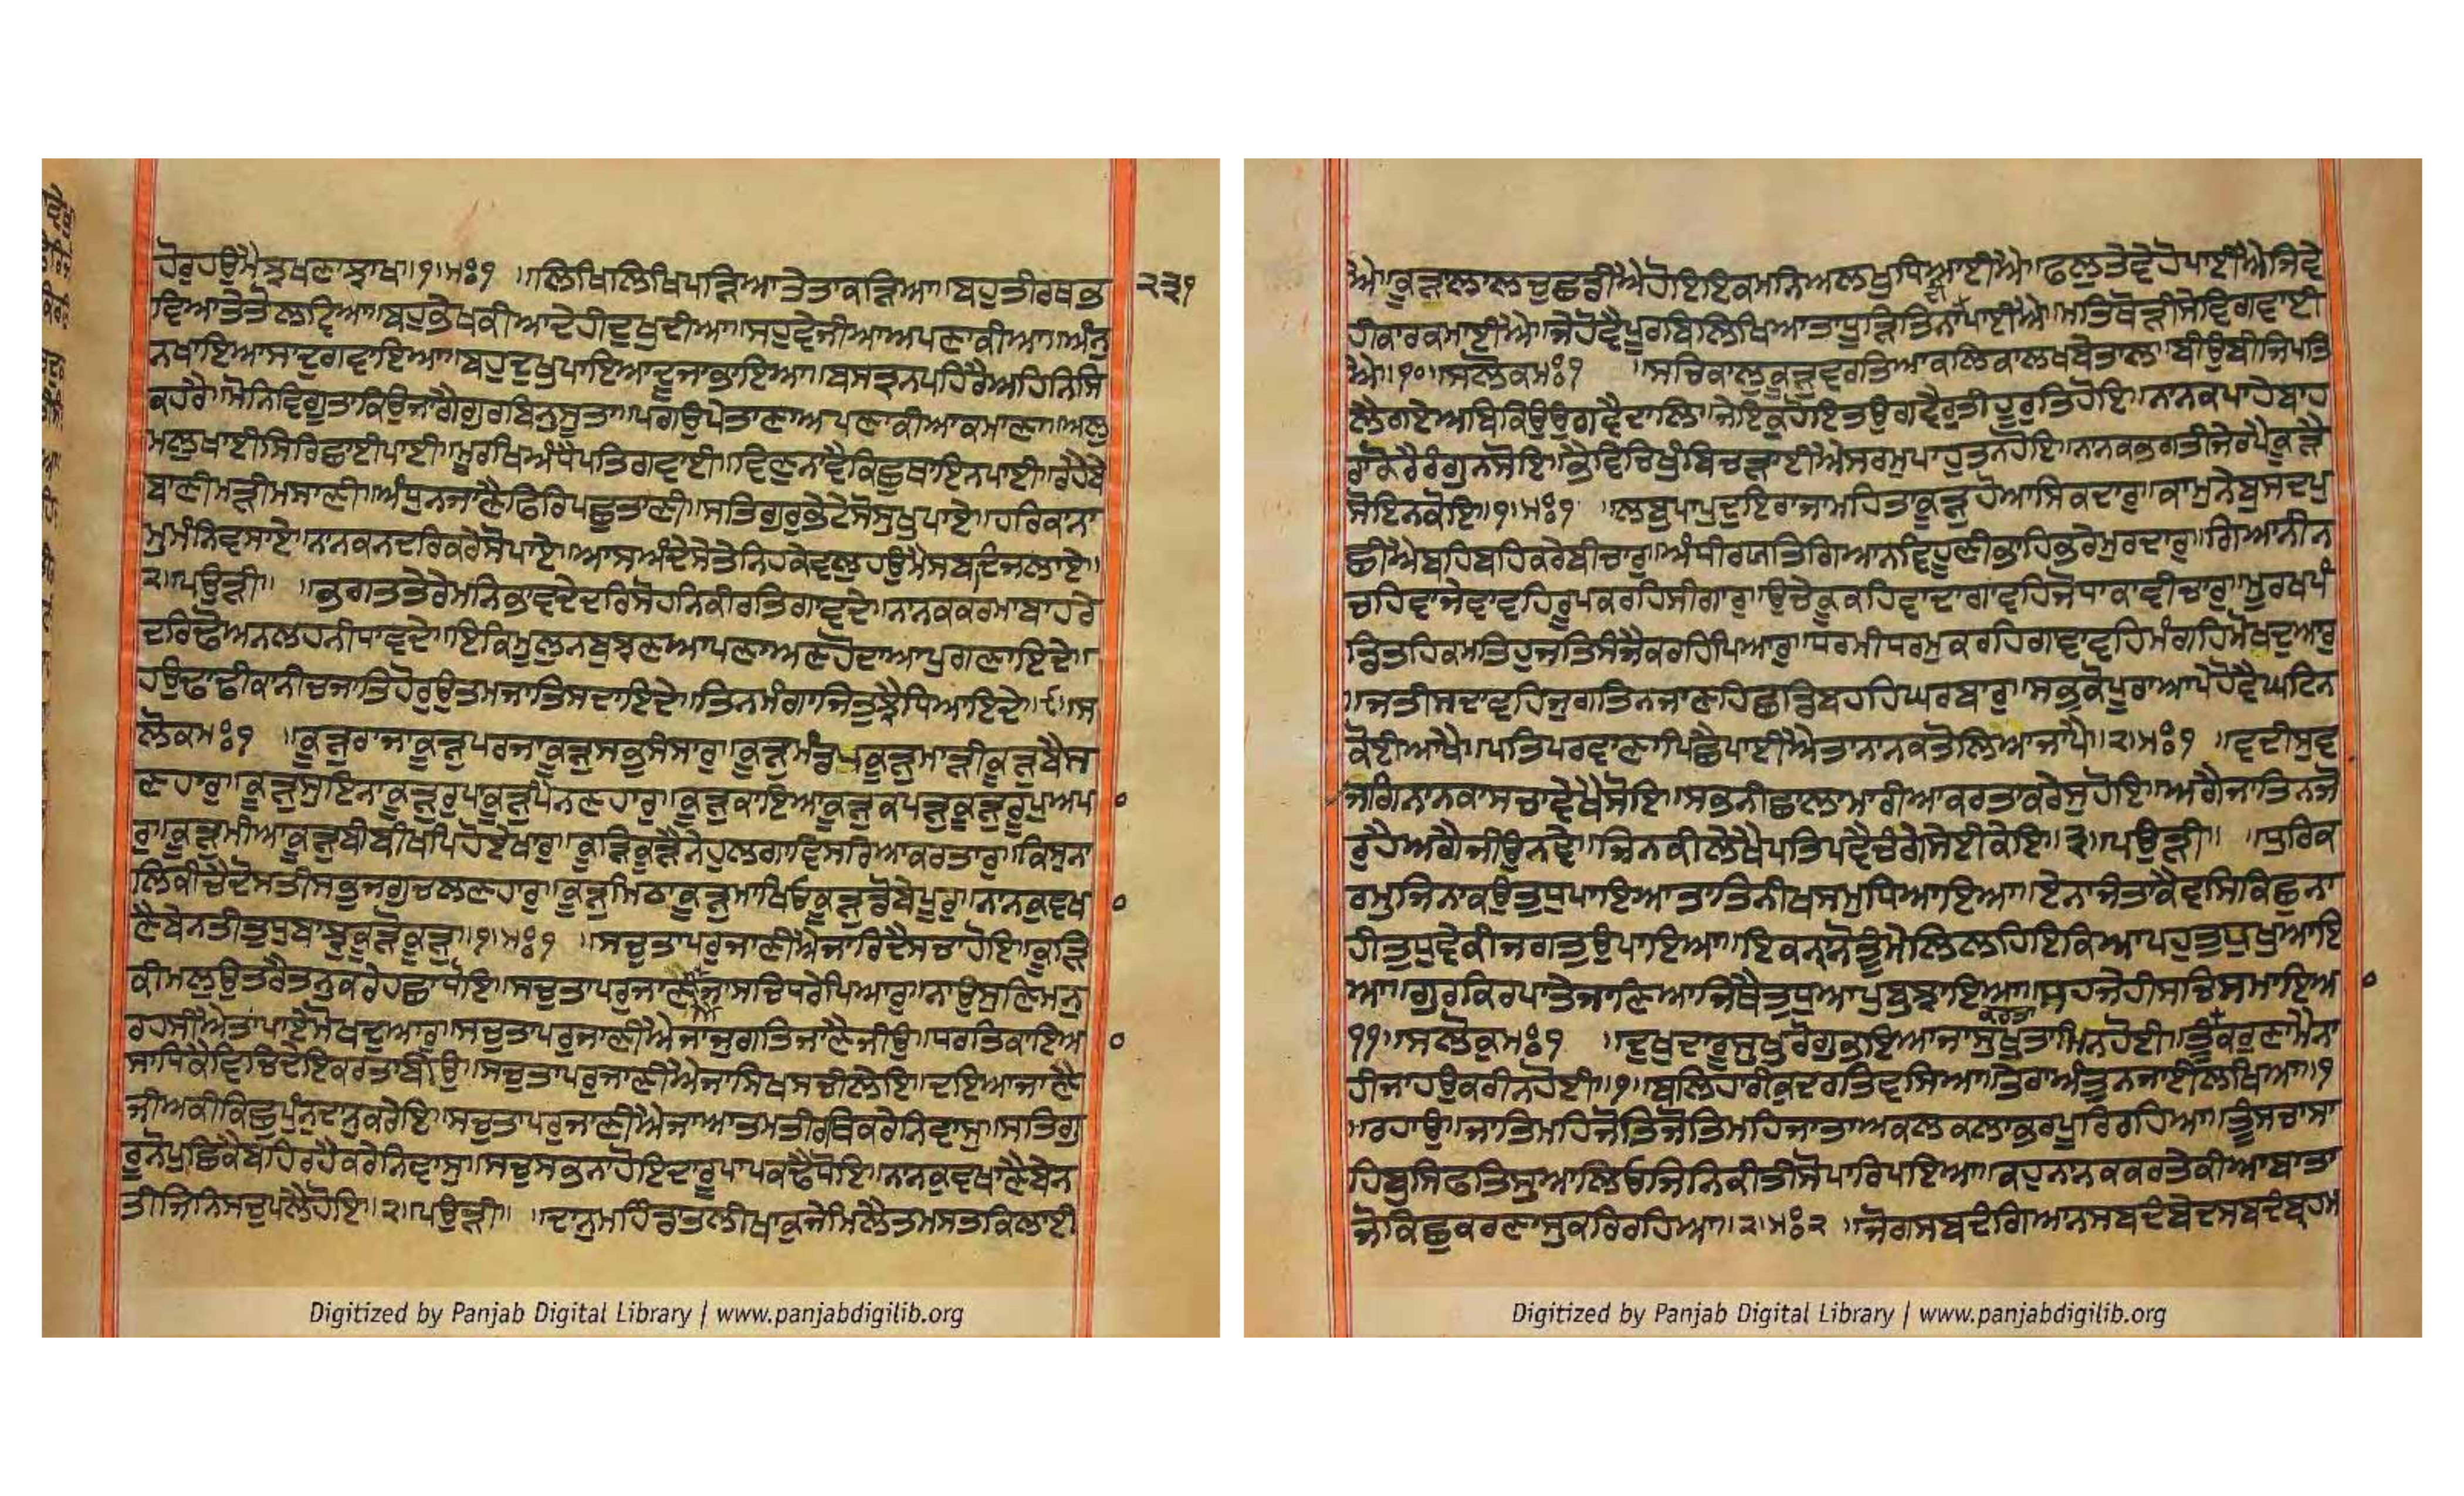 ਹੋਰੁਹਉਮੈਝਖਣਾਝਾਖ॥੧॥ਮਃ੧ ॥ਲਿਖਿਲਿਖਿਪੜਿਆਤੇਤਾਕੜਿਆ॥ਬਹੁਤੀਰਥਭ ੨੩੧
ਵਿਆਤੇਤੋਲਵਿਆ॥ਬਹੁਭੇਖਕੀਆਦੇਹੀਦੁਖੁਦੀਆ॥ਸਹੁਵੇਜੀਆਅਪਣਾਕੀਆ॥ਅੰਨੁ
ਨਖਾਇਆਸਾਦੁਗਵਾਇਆ॥ਬਹੁਦੁਖੁਪਾਇਆਦੂਜਾਭਾਇਆ॥ਬਸਤ੍ਰਨਪਹਿਰੈਅਹਿਨਿਸਿ
ਕਹਰੈ॥ਮੋਨਿਵਿਗੂਤਾਕਿਉਜਾਗੈਗੁਰਬਿਨੁਸੂਤਾ॥ਪਗਉਪੇਤਾਣਾਅਪਣਾਕੀਆਕਮਾਣਾ॥ਅਲੁ
ਮਲੁਖਾਈਸਿਰਿਛਾਈਪਾਈ॥ਮੂਰਖਿਅੰਧੈਪਤਿਗਵਾਈ॥ਵਿਣੁਨਾਵੈਕਿਛੁਥਾਇਨਪਾਈ॥ਰਹੈਬੇ
ਬਾਣੀਮੜੀਮਸਾਣੀ॥ਅੰਧੁਨਜਾਣੈਫਿਰਿਪਛੁਤਾਣੀ॥ਸਤਿਗੁਰੁਭੇਟੇਸੋਸੁਖੁਪਾਏ॥ਹਰਿਕਾਨਾ
ਮੁਮੰਨਿਵਸਾਏ॥ਨਾਨਕਨਦਰਿਕਰੇਸੋਪਾਏ॥ਆਸਅੰਦੇਸੇਤੇਨਿਹਕੇਵਲੁਹਉਮੈਸਬਦਿਜਲਾਏ॥
੨॥ਪਉੜੀ॥ ॥ਭਗਤਤੇਰੇਮਨਿਭਾਵਦੇਦਰਿਸੋਹਨਿਕੀਰਤਿਗਾਵਦੇ॥ਨਾਨਕਕਰਮਾਬਾਹਰੇ
ਦਰਿਢੋਅਨਲਹਨੀਧਾਵਦੇ॥ਇਕਿਮੂਲੁਨਬੁਝਣਆਪਣਾਅਣਹੋਦਾਆਪੁਗਣਾਇਦੇ॥
ਹਉਢਾਢੀਕਾਨੀਚਜਾਤਿਹੋਰੁਉਤਮਜਾਤਿਸਦਾਇਦੇ॥ਤਿਨਮੰਗਾਜਿਤੁਝੈਧਿਆਇਦੇ॥੯॥ਸ
ਲੋਕਮਃ੧ ॥ਕੂੜੁਰਾਜਾਕੂੜੁਪਰਜਾਕੂੜੁਸਭੁਸੰਸਾਰੁ॥ਕੂੜੁਮੰਡਪਕੂੜੁਮਾੜੀਕੂੜੁਬੈਸ
ਣਹਾਰੁ॥ਕੂੜੁਸੁਇਨਾਕੂੜੁਰੁਪਾਕੂੜੁਪੈਨਣਹਾਰੁ॥ਕੂੜੁਕਾਇਆਕੂੜੁਕਪੜੁਕੂੜੁਰੂਪੁਅਪਾ
ਰੁ॥ਕੂੜੁਮੀਆਕੂੜੁਬੀਬੀਖਪਿਹੋਏਖਾਰੁ॥ਕੂੜਿਕੂੜੈਨੇਹੁਲਗਾਵਿਸਰਿਆਕਰਤਾਰੁ॥ਕਿਸੁਨਾ
ਲਿਕੀਚੈਦੋਸਤੀਸਭੁਜਗੁਚਲਣਹਾਰੁ॥ਕੂੜੁਮਿਠਾਕੂੜੁਮਾਖਿਓਕੂੜੁਡੋਬੇਪੂਰੁ॥ਨਾਨਕੁਵਖਾ
ਣੈਬੇਨਤੀਤੁਧੁਬਾਝੁਕੂੜੋਕੂੜੁ॥੧॥ਮਃ੧ ॥ਸਚੁਤਾਪਰੁਜਾਣੀਐਜਾਰਿਦੈਸਚਾਹੋਇ॥ਕੂੜਿ
ਕੀਮਲੁਉਤਰੈਤਨੁਕਰੇਹਛਾਧੋਇ॥ਸਚੁਤਾਪਰੁਜਾਣੀਐਜਾਸਚਿਧਰੇਪਿਆਰੁ॥ਨਾਉਸੁਣਿਮਨੁ
ਰਹਸੀਐਤਾਪਾਏਮੋਖਦੁਆਰੁ॥ਸਚੁਤਾਪਰੁਜਾਣੀਐਜਾਜੁਗਤਿਜਾਣੈਜੀਉ॥ਧਰਤਿਕਾਇਆ
ਸਾਧਿਕੇਵਿਚਿਦੇਇਕਰਤਾਬੀਉ॥ਸਚੁਤਾਪਰੁਜਾਣੀਐਜਾਸਿਖਸਚੀਲੇਇ॥ਦਇਆਜਾਣੈ
ਜੀਅਕੀਕਿਛੁਪੁੰਨੁਦਾਨੁਕਰੇਇ॥ਸਚੁਤਾਪਰੁਜਾਣੀਐਜਾਆਤਮਤੀਰਥਿਕਰੇਨਿਵਾਸੁ॥ਸਤਿਗੁ
ਰੂਨੋਪੁਛਿਕੈਬਹਿਰਹੈਕਰੇਨਿਵਾਸੁ॥ਸਚੁਸਭਨਾਹੋਇਦਾਰੂਪਾਪਕਢੈਧੋਇ॥ਨਾਨਕੁਵਖਾਣੈਬੇਨ
ਤੀਜਿਨਿਸਚੁਪਲੈਹੋਇ॥੨॥ਪਉੜੀ॥ ॥ਦਾਨੁਮਹਿੰਡਾਤਲੀਖਾਕੁਜੇਮਿਲੈਤਮਸਤਕਿਲਾਈ
ਐ॥ਕੂੜਾਲਾਲਚੁਛਡੀਐਹੋਇਇਕਮਨਿਅਲਖੁਧਿਆਈਐ॥ਫਲੁਤੇਵੇਹੋਪਾਈਐਜੇਵੇ
ਹੀਕਾਰਕਮਾਈਐ॥ਜੇਹੋਵੈਪੂਰਬਿਲਿਖਿਆਤਾਧੂੜਿਤਿਨਾਦੀਪਾਈਐ॥ਮਤਿਥੋੜੀਸੇਵਗਵਾਈ
ਐ॥੧੦॥ਸਲੋਕਮਃ੧ ॥ਸਚਿਕਾਲੁਕੂੜੁਵਰਤਿਆਕਲਿਕਾਲਖਬੇਤਾਲ॥ਬੀਉਬੀਜਿਪਤਿ
ਲੈਗਏਅਬਕਿਉਉਗਵੈਦਾਲਿ॥ਜੇਇਕੁਹੋਇਤਉਗਵੈਰੁਤੀਹੂਰੁਤਿਹੋਇ॥ਨਾਨਕਪਾਹੇਬਾਹ
ਰਾਕੋਰੈਰੰਗੁਨਸੋਇ॥ਭੈਵਿਚਿਖੁੰਬਿਚੜਾਈਐਸਰਮੁਪਾਹੁਤਨਿਹੋਇ॥ਨਾਨਕਭਗਤੀਜੇਰਪੈਕੂੜੈ
ਸੋਇਨਕੋਇ॥੧॥ਮਃ੧ ॥ਲਬੁਪਾਪੁਦੁਇਰਾਜਾਮਹਿਤਾਕੂੜੁਹੋਆਸਿਕਦਾਰੁ॥ਕਾਮੁਨੇਬੁਸਦਿਪੁ
ਛੀਐਬਹਿਬਹਿਕਰੇਬੀਚਾਰੁ॥ਅੰਧੀਰਯਤਿਗਿਆਨਵਿਹੂਣੀਭਾਹਿਭਰੇਮੁਰਦਾਰੁ॥ਗਿਆਨੀਨ
ਚਹਿਵਾਜੇਵਾਵਹਿਰੂਪਕਰਹਿਸੀਗਾਰੁ॥ਉਚੇਕੂਕਹਿਵਾਦਾਗਾਵਹਿਜੋਧਾਕਾਵੀਚਾਰੁ॥ਮੂਰਖਪੰ
ਡਿਤਹਿਕਮਤਿਹੁਜਤਿਸੰਜੈਕਰਹਿਪਿਆਰੁ॥ਧਰਮੀਧਰਮੁਕਰਹਿਗਵਾਵਹਿਮੰਗਹਿਮੋਖਦੁਆਰੁ
॥ਜਤੀਸਦਾਵਹਿਜੁਗਤਿਨਜਾਣਹਿਛਡਿਬਹਹਿਘਰਬਾਰੁ॥ਸਭੁਕੋਪੂਰਾਆਪੇਹੋਵੈਘਟਿਨ
ਕੋਈਆਖੈ॥ਪਤਿਪਰਵਾਣਾਪਿਛੈਪਾਈਐਤਾਨਾਨਕਤੋਲਿਆਜਾਪੈ॥੨॥ਮਃ੧ ॥ਵਦੀਸੁਵ
ਜਗਿਨਾਨਕਾਸਚਾਵੇਖੈਸੋਇ॥ਸਭਨੀਛਾਲਾਮਾਰੀਆਕਰਤਾਕਰੇਸੁਹੋਇ॥ਅਗੈਜਾਤਿਨਜੋ
ਰੁਹੈਅਗੈਜੀਉਨਵੇ॥ਜਿਨਕੀਲੇਖੈਪਤਿਪਵੈਚੰਗੇਸੇਈਕੇਇ॥੩॥ਪਉੜੀ॥ ॥ਧੁਰਿਕ
ਰਮੁਜਿਨਾਕਉਤੁਧੁਪਾਇਆਤਾਤਿਨੀਖਸਮੁਧਿਆਇਆ॥ਏਨਾਜੰਤਾਕੈਵਸਿਕਿਛੁਨਾ
ਹੀਤੁਧੁਵੇਕੀਜਗਤੁਉਪਾਇਆ॥ਇਕਨਾਨੋਤੂੰਮੇਲਿਲਹਿਇਕਿਆਪਹੁਤੁਧੁਖੁਆਇ
ਆ॥ਗੁਰਕਿਰਪਾਤੇਜਾਣਿਆਜਿਥੈਤੁਧੁਆਪੁਬੁਝਾਇਆ॥ਸਹਜੇਹੀਸਚਿਸਮਾਇਆ
੧੧॥ਸਲੋਕੁਮਃ੧ ॥ਦੁਖੁਦਾਰੂਸੁਖੁਰੋਗੁਭਇਆਜਾਸੁਖੁਤਾਮਿਨਹੋਈ॥ਤੂੰਕਰਤਾਕਰਣਾਮੈਨਾ
ਹੀਜਾਹਉਕਰੀਨਹੋਈ॥੧॥ਬਲਿਹਾਰੀਕੁਦਰਤਿਵਸਿਆ॥ਤੇਰਾਅੰਤੁਨਜਾਈਲਖਿਆ॥੧
॥ਰਹਾਉ॥ਜਾਤਿਮਹਿਜੋਤਿਜੋਤਿਮਹਿਜਾਤਾਅਕਲਕਲਾਭਰਪੂਰਿਰਹਿਆ॥ਤੂੰਸਚਾਸਾ
ਹਿਬੁਸਿਫਤਿਸੁਆਲਿਓਜਿਨਿਕੀਤੀਸੋਪਾਰਿਪਇਆ॥ਕਹੁਨਾਨਕਕਰਤੇਕੀਆਬਾਤਾ
ਜੋਕਿਛੁਕਰਣਾਸੁਕਰਿਰਹਿਆ॥੨॥ਮਃ੨ ॥ਜੋਗਸਬਦੰਗਿਆਨਸਬਦੰਬੇਦਸਬਦੰਬ੍ਰਾਹਮ
Digitized by Panjab Digital Library | www.panjabdigilib.org
Digitized by Panjab Digital Library | www.panjabdigilib.org